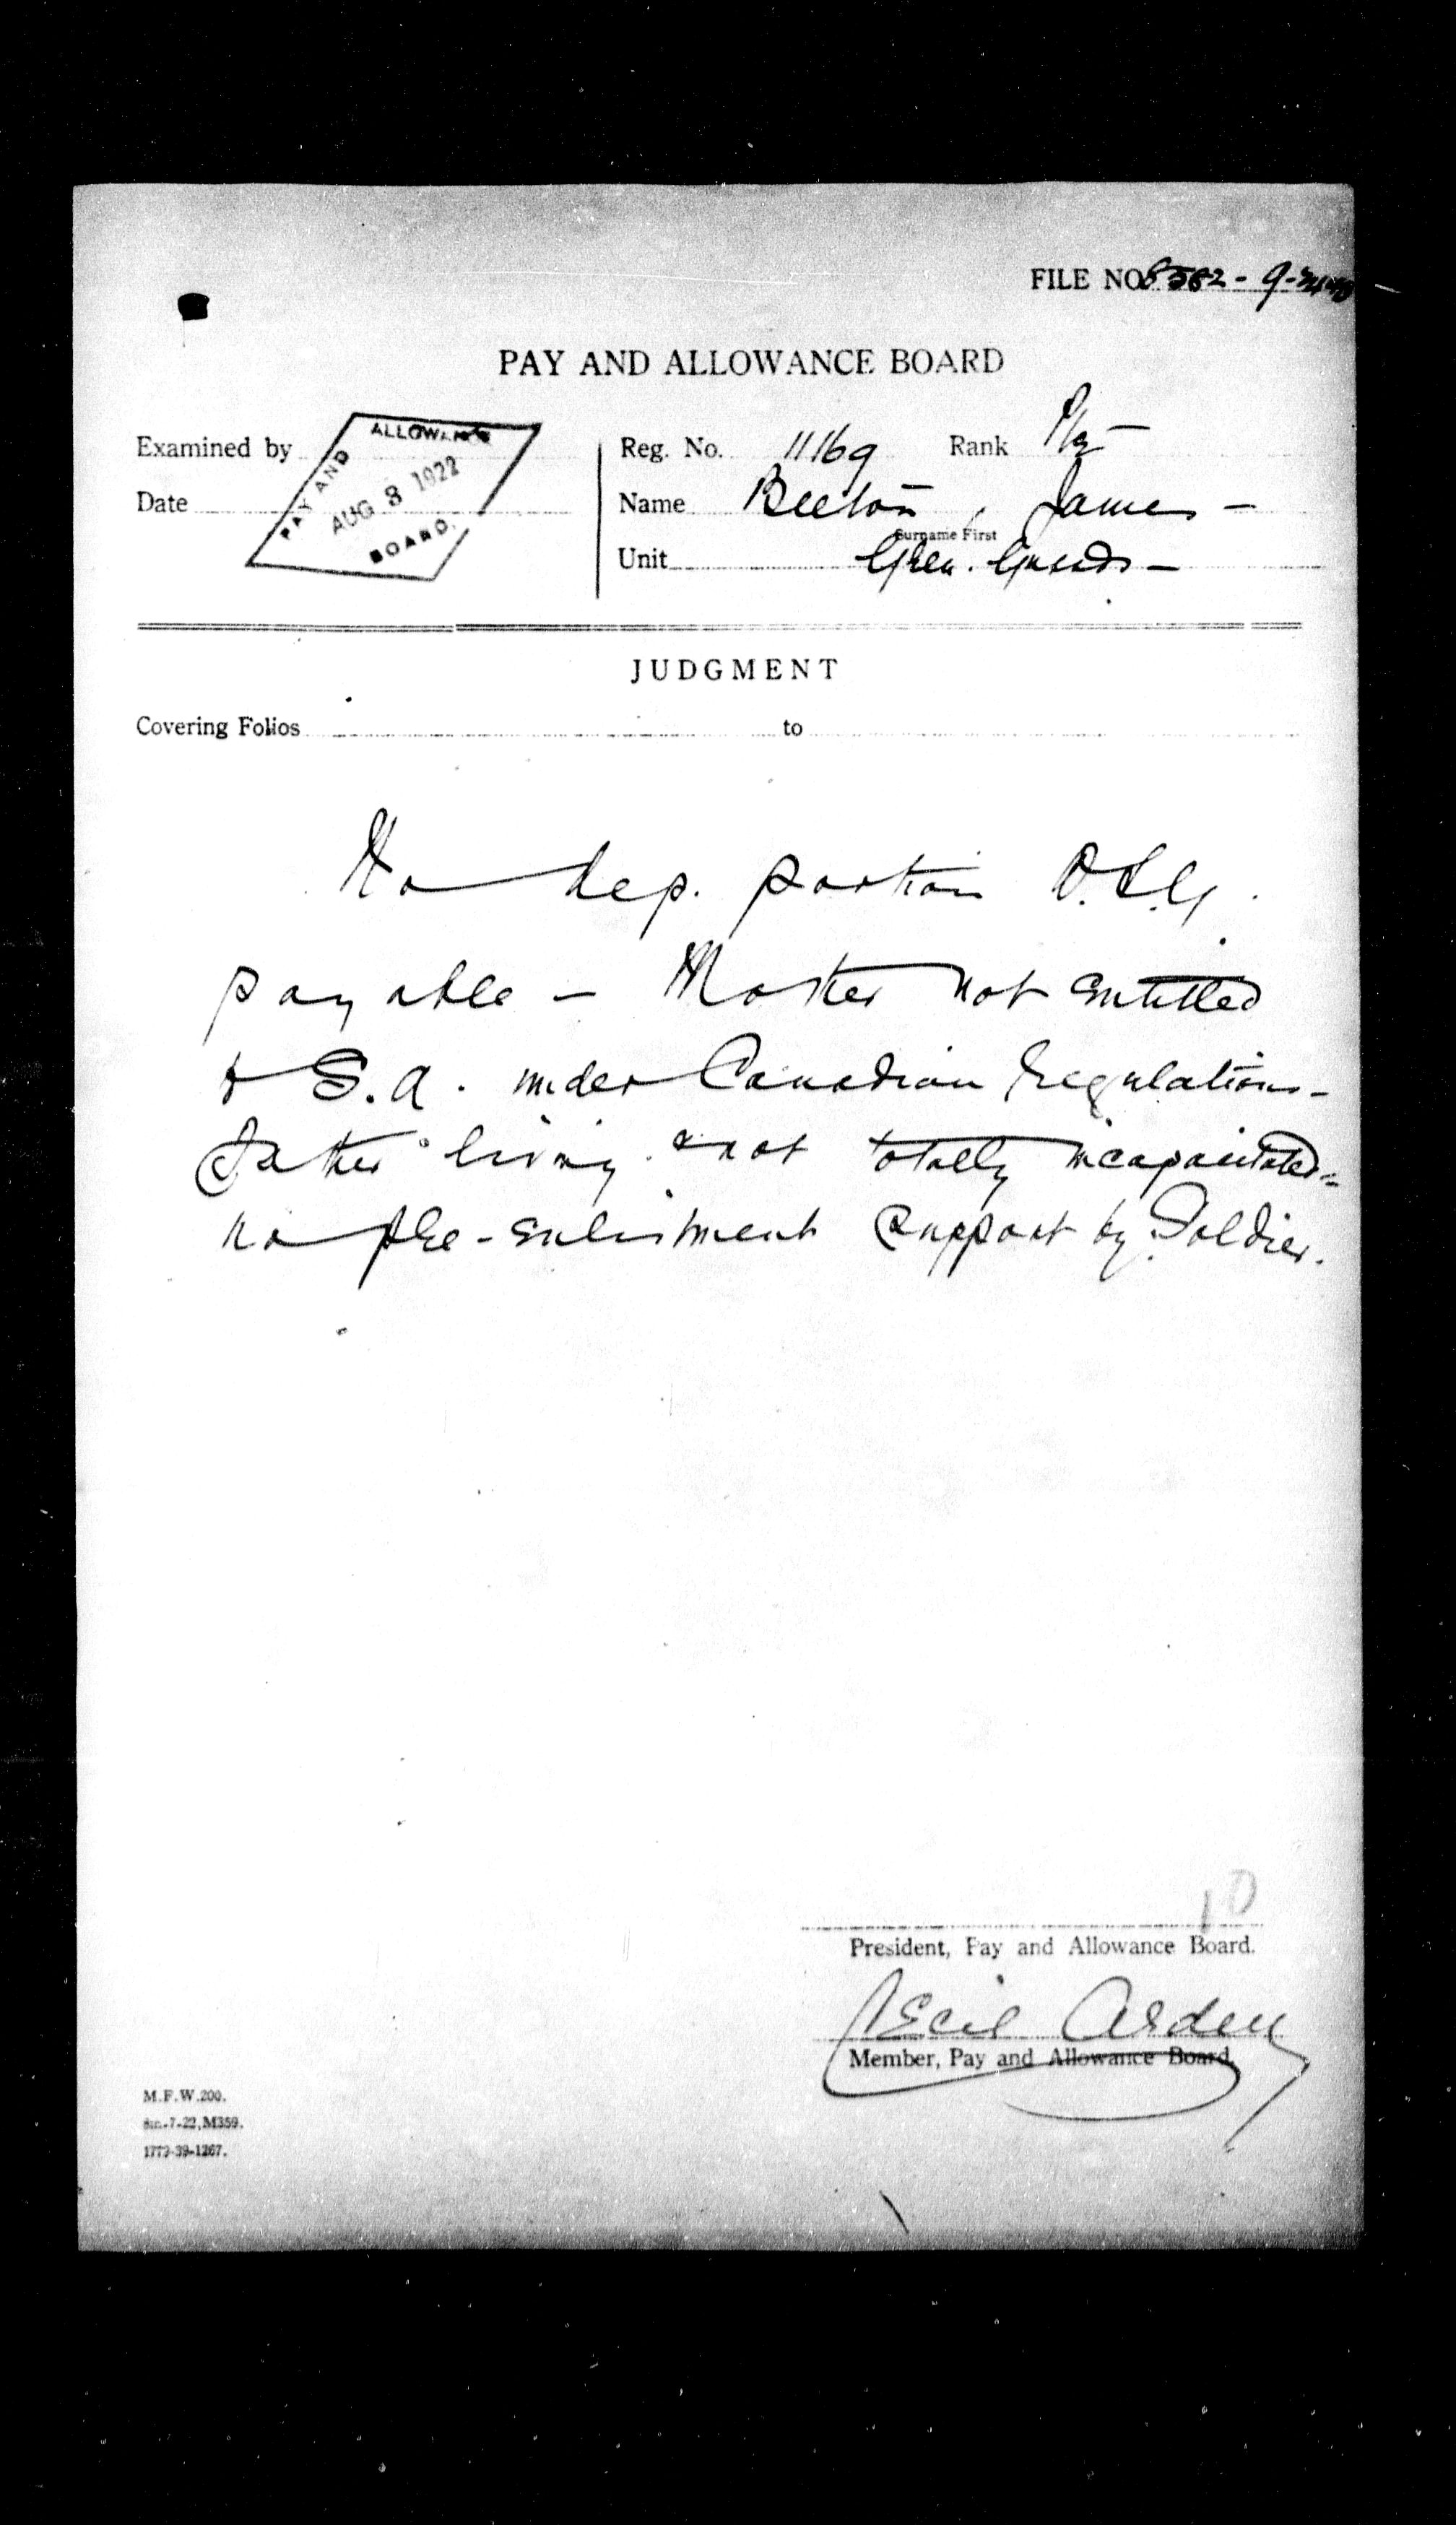 FILE NO. 8582-9-
PAY AND ALLOWANCE BOARD
Examined by
Date
PAY AND ALLOWANCE BOARD.
AUG 8 1922
Reg. No. 11169 Rank Pte
Name Beeton, James -
Surname First
Unit Gren. Guards -
JUDGMENT
Covering Folios to
No dep. portion W.S.G.
payable - Mother not entitled
to S.A. under Canadian Regulations -
Father living & not totally incapacitated -
no pre-enlistment support by Soldier.
10
President, Pay and Allowance Board.
Cecil Arden
Member, Pay and Allowance Board.
M.F.W.200.
-7-22,M359.
1772-39-1267.